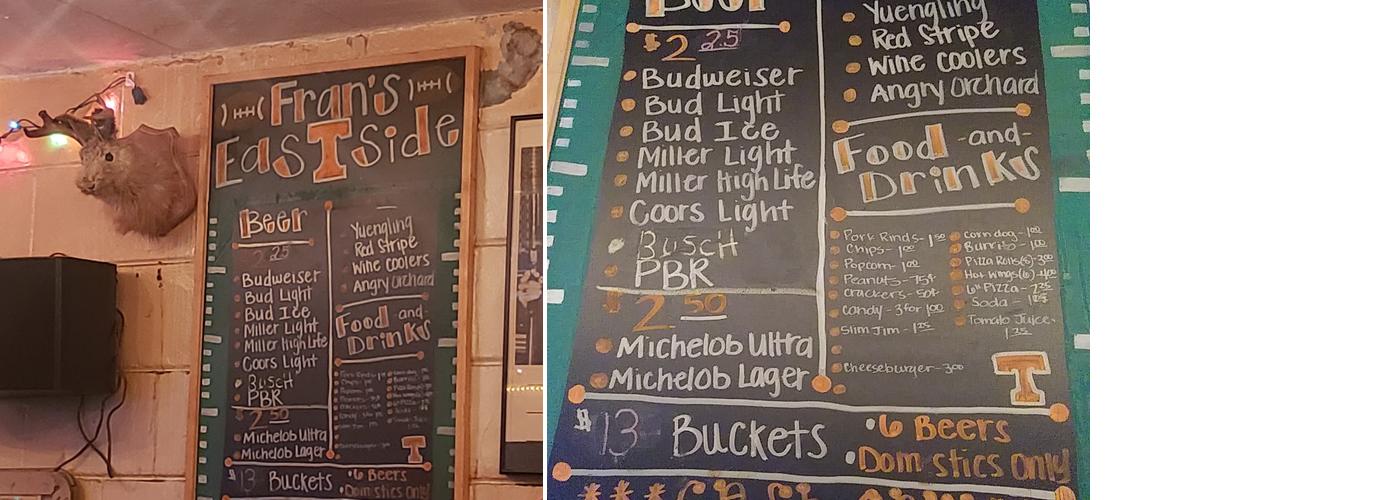 Fran's
EasTside
Beer
2.25
Budweiser
Bud Light
Bud Ice
Miller Light
Miller High Life
Coors Light
Busch
PBR
2.50
Michelob Ultra
Michelob Lager
Yuengling
Red Stripe
Wine Coolers
Angry Orchard
Food -and-
Drinks
Cheeseburger-3.00
T
$13 Buckets
6 Beers
Domestics Only
Beer
$2.25
Budweiser
Bud Light
Bud Ice
Miller Light
Miller High Life
Coors Light
Busch
PBR
$2.50
Michelob Ultra
Michelob Lager
Yuengling
Red Stripe
Wine Coolers
Angry Orchard
Food -and-
Drinks
Pork Rinds-1.50
Chips-1.00
Popcorn-1.00
Peanuts-75¢
Crackers-50¢
Candy-3 for 1.00
Slim Jim-1.25
Cheeseburger-3.00
Corn dog-1.00
Burrito-1.00
Pizza Rolls(5)-3.00
Hot Wings(6)-4.00
6" Pizza-2.25
Soda-1.25
Tomato Juice-
1.25
T
$13 Buckets
6 Beers
Dom stics Only